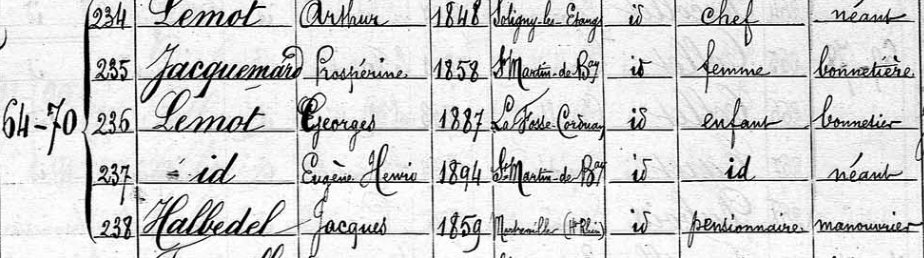 234 Lemot Arthur 1848 Soligny-les-Etangs id chef néant
235 Jacquemard Prospérine 1858 St Martin-de-Bay id femme bonnetière
64-70 236 Lemot Georges 1887 La Fosse-Corduan id enfant bonnetier
237 id Eugène Henri 1894 St Martin-de-Bay id id néant
238 Halbedel Jacques 1859 (Ht Rhin) id pensionnaire manouvrier